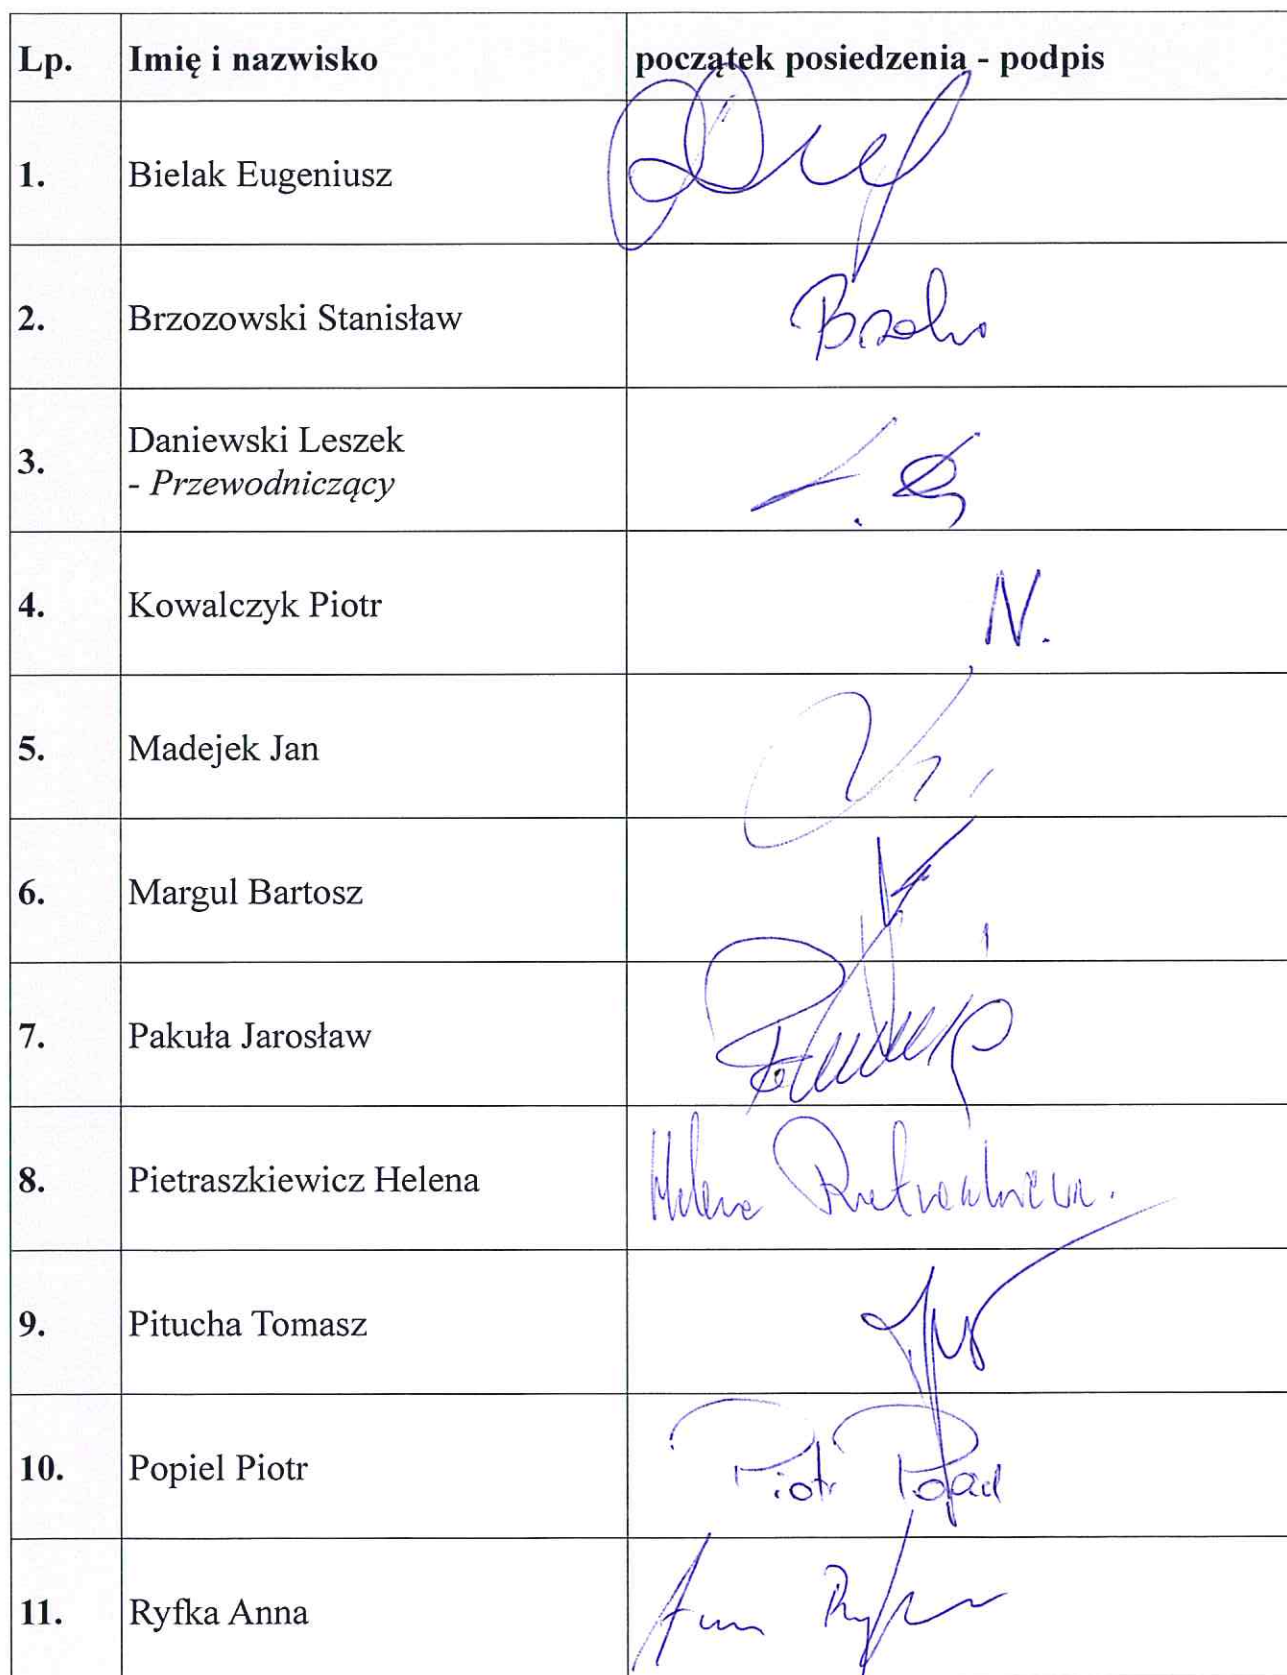 Lp. Imię i nazwisko początek posiedzenia - podpis
1. Bielak Eugeniusz
2. Brzozowski Stanisław
3. Daniewski Leszek
- Przewodniczący
4. Kowalczyk Piotr N.
5. Madejek Jan
6. Margul Bartosz
7. Pakuła Jarosław
8. Pietraszkiewicz Helena Helena
9. Pitucha Tomasz
10. Popiel Piotr Piotr
11. Ryfka Anna